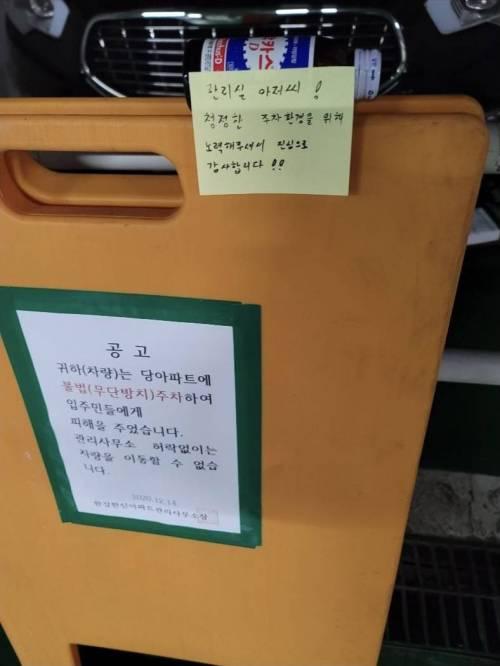 카스
D
관리실 아저씨 !
청정한 주차환경을 위해
노력해주셔서 진심으로
감사합니다 !!
공 고
귀하(차량)는 당아파트에
불법(무단방치)주차하여
입주민들에게
피해를 주었습니다.
관리사무소 허락없이는
차량을 이동할 수 없습
니다.
2020.12.14.